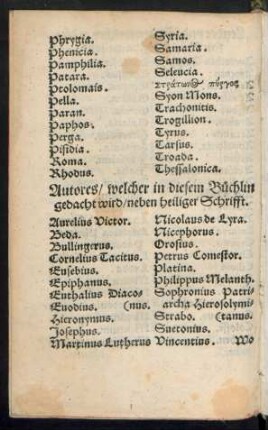 Phrygia.
Phenicia.
Pamphilia.
Patara.
Ptolomais.
Pella.
Paran.
Paphos.
Perga.
Pisidia.
Roma.
Rhodus.
Syria.
Samaria.
Samos.
Seleucia.
πύργος
Syon Mons.
Trachonitis.
Trogillion.
Tyrus.
Tarsus.
Troada.
Thessalonica.
Autores/ welcher in diesem Büchlin
gedacht wird/ neben heiliger Schrifft.
Aurelius Victor.
Beda.
Bullingerus.
Cornelius Tacitus.
Eusebius.
Epiphanus.
Euthalius Diaco-
Euodius. (nus.
Hieronymus.
Josephus.
Martinus Lutherus
Nicolaus de Lyra.
Nicephorus.
Orosius.
Petrus Comestor.
Platina.
Philippus Melanth.
Sophronius Patri-
archa Hierosolymi-
Strabo. (tanus.
Suetonius.
Vincentius. Wo